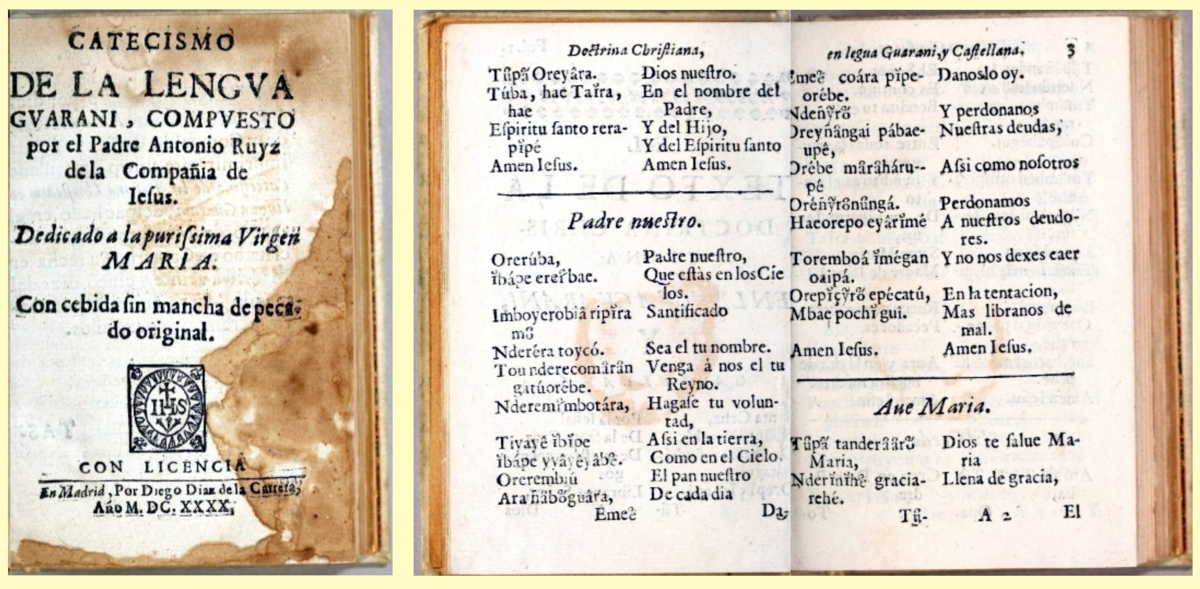 CATECISMO
DE LA LENGVA
GVARANI, COMPVESTO
por el Padre Antonio Ruyz
de la Compañia de
Iesus.
Dedicado a la purissima Virgen
MARIA.
Con cebida sin mancha de peca-
do original.
IHS
CON LICENCIA
En Madrid, Por Diego Diaz de la Carrera,
Año M. DC. XXXX.
Doctrina Christiana,
Tũpã Oreyâra. Dios nuestro.
Túba, hae Taĭra, En el nombre del
hae Padre,
Espiritu santo rera- Y del Hijo,
pĭpé Y del Espiritu santo
Amen Iesus. Amen Iesus.
Padre nuestro.
Orerúba, Padre nuestro,
ĭbápe ereĭbae. Que estàs en los Cie
los.
Imboyerobiâ ripĭra Santificado
mõ
Nderéra toycó. Sea el tu nombre.
Tou nderecomârãn Venga á nos el tu
gatúorébe. Reyno.
Nderemĭmbotára, Hagase tu volun-
tad,
Tiyayê ĭbĭpe Assi en la tierra,
ĭbápe yyayeyâbê. Como en el Cielo.
Orerembiú El pan nuestro
Arañâbõguára, De cada dia
Emeê Da-
en legua Guarani, y Castellana. 3
Emeê coára pĭpe- Danoslo oy.
orébe.
Ndeñỹrõ Y perdonanos
Oreyñangai pábae- Nuestras deudas,
upê,
Orébe mârâháru- Assi como nosotros
pé
Oréñỹrõnũngá. Perdonamos
Haeorepo eyârĭmé A nuestros deudo-
res.
Toremboá ĭmégan Y no nos dexes caer
oaipá.
Orepĭçỹrõ epécatú, En la tentacion,
Mbae pochĭ gui. Mas libranos de
mal.
Amen Iesus. Amen Iesus.
Aue Maria.
Tũpã tanderââRõ Dios te salue Ma-
Maria, ria
Nderĩnĩhê gracia- Llena de gracia,
rehé.
Tũ- A 2 El